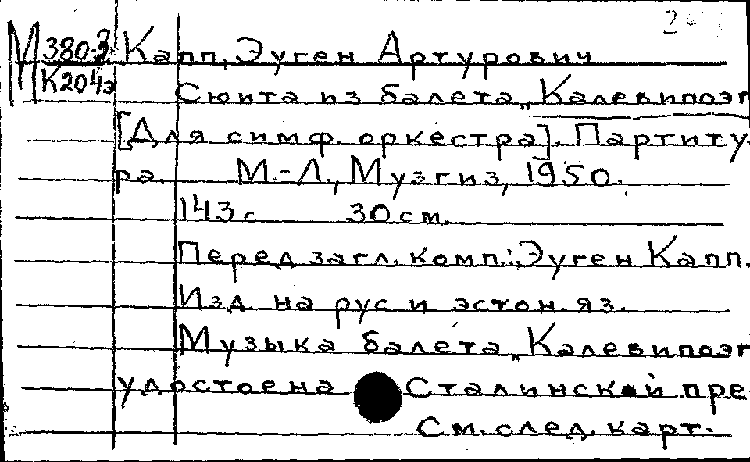 М 380-3 Капп, Эуген Артурович
К204э Сюита из балета „Калевипоэг
[Для симф. оркестра]. Партиту-
ра. М.-Л., Музгиз, 1950.
143 с. 30 см.
Перед загл. комп.: Эуген Капп.
Изд. на рус и эстон. яз.
Музыка балета „Калевипоэг
удостоена Сталинской пре-
См. след. карт.